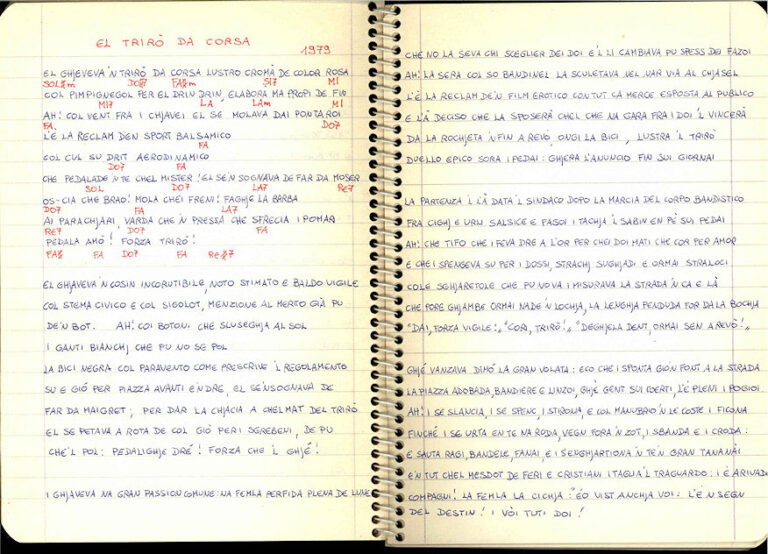 EL TRIRÒ DA CORSA
1979
EL GHJEVEVA 'N TRIRÒ DA CORSA LUSTRO CROMÀ DE COLOR ROSA
SOL♯m DO♯7 FA♯m SI7 MI
COL PIMPIGNEGOL PER EL DRIN DRIN, ELABORÀ MA PROPI DE FIN
MI7 LA LAm MI
AH! COL VENT FRA I CHJAVEI EL SE MOLAVA DAI PONTAROI
FA. DO7
L'È LA RECLAM D'EN SPORT BALSAMICO
FA
COL CUL SU DRIT AERODINAMICO
DO7 FA
CHE PEDALADE 'N TE CHEL MISTER! EL SE'N SOGNAVA DE FAR DA MOSER
SOL DO7 LA7 RE7
OS-CIA CHE BRAO! MOLA CHEI FRENI! FAGHJE LA BARBA
DO7 FA LA7
AI PARACHJARI, VARDA CHE 'N PRESSA CHE SFRECIA I POMAR
RE7 DO7 FA
PEDALA AMÒ! FORZA TRIRÒ!
FA♯ FA DO7 FA RE♯7
EL GHJAVEVA 'N COSIN INCORUTIBILE, NOTO STIMATO E BALDO VIGILE
COL STEMA CIVICO E COL SIGOLOT, MENZIONE AL MERTO GIÀ PU
DE'N BOT. AH! COI BOTONI CHE SLUSEGHJA AL SOL
I GANTI BIANCHJ CHE PU NO SE POL
LA BICI NEGRA COL PARAVENTO COME PRESCRIVE 'L REGOLAMENTO
SU E GIÓ PER PIAZZA AVANTI E'NDRE, EL SE'NSOGNAVA DE
FAR DA MAIGRET, PER DAR LA CHJACIA A CHEL MAT DEL TRIRÒ
EL SE PETAVA A ROTA DE COL GIÓ PER I SGREBENI, DE PU
CHE'L POL: PEDALIGHJE DRÉ! FORZA CHE 'L GHJÉ!
I GHJAVEVA NA GRAN PASSION GMUNE: NA FEMLA PERFIDA PLENA DE LUNE
CHE NO LA SEVA CHI SCEGLIER DEI DOI E LI CAMBIAVA PU SPESS DEI FAZOI
AH! LA SERA COL SO BANDINEL LA SCULETAVA NEL NAR VIA AL CHJASEL
L'È LA RECLAM D'EN FILM EROTICO CON TUT CA MERCE ESPOSTA AL PUBLICO
E LÀ DECISO CHE LA SPOSERÀ CHEL CHE NA GARA FRA I DOI 'L VINCERÀ
DA LA ROCHJETA 'N FIN A REVÒ, ONGI LA BICI, LUSTRA 'L TRIRÒ
DUELLO EPICO SORA I PEDAI: GHJERA L'ANUNCIO FIN SUI GIORNAI
LA PARTENZA L'À DATA 'L SINDACO DOPO LA MARCIA DEL CORPO BANDISTICO
FRA CIGHJ E URLI SALSICE E FASOI I TACHJA 'L SABIN EN PÈ SUI PEDAI
AH! CHE TIFO CHE I FEVA DRE A L'OR PER CHEI DOI MATI CHE COR PER AMOR
E CHEI SPENGEVA SU PER I DOSSI, STRACHJ SUGHJADI E ORMAI STRALOCI
COLE SGHJARETOLE CHE PU NOVA I MISURAVA LA STRADA 'N CA E LÀ
CHE PORE GHJAMBE ORMAI NADE 'N LOCHJA, LA LENGHJA PENDUDA FOR DA LA BOCHJA
"DAI, FORZA VIGILE!" "CORI, TRIRÒ!" "DEGHJELA DENT, ORMAI SEN A REVÒ!"
GHJÉ VANZAVA DIMÓ LA GRAN VOLATA: ECO CHE I SPONTA GIÓ 'N FONT A LA STRADA
LA PIAZZA ADOBADA, BANDIERE E LINZOI, GHJÈ GENT SUI COERTI, L'È PLENI I POGIOI
AH! I SE SLANCIA, I SE SPENC, I STIRONA, E COL MANUBRI 'N LE COSTE I FICONA
FINCHÉ I SE URTA EN TE NA RODA, VEGN FORA 'N ZOT, I SBANDA E I CRODA:
E SAUTA RAGI, BANDELE, FANAI, E I S'ENGHJARTIONA 'N TE'N GRAN TANANAI
EN TUT CHEL MESDOT DE FERI E CRISTIANI I TAGLIA 'L TRAGUARDO: I È ARIVADI
COMPAGNI! LA FEMLA LA CICHJA: "EO VIST ANCHJA VOI: L'È 'N SEGN
DEL DESTIN! I VÒI TUTI DOI!